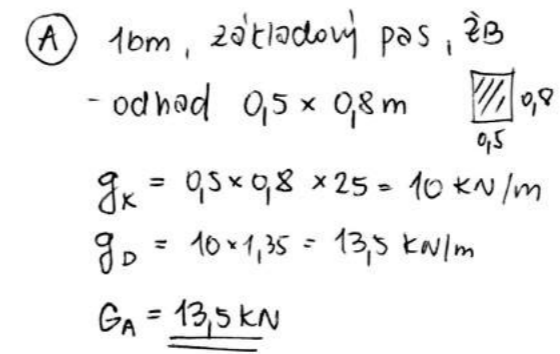 A 1bm, základový pas, ŽB
- odhad 0,5 × 0,8 m
0,8
0,5
gK = 0,5 × 0,8 × 25 = 10 KN/m
gD = 10 × 1,35 = 13,5 KN/m
GA = 13,5 KN